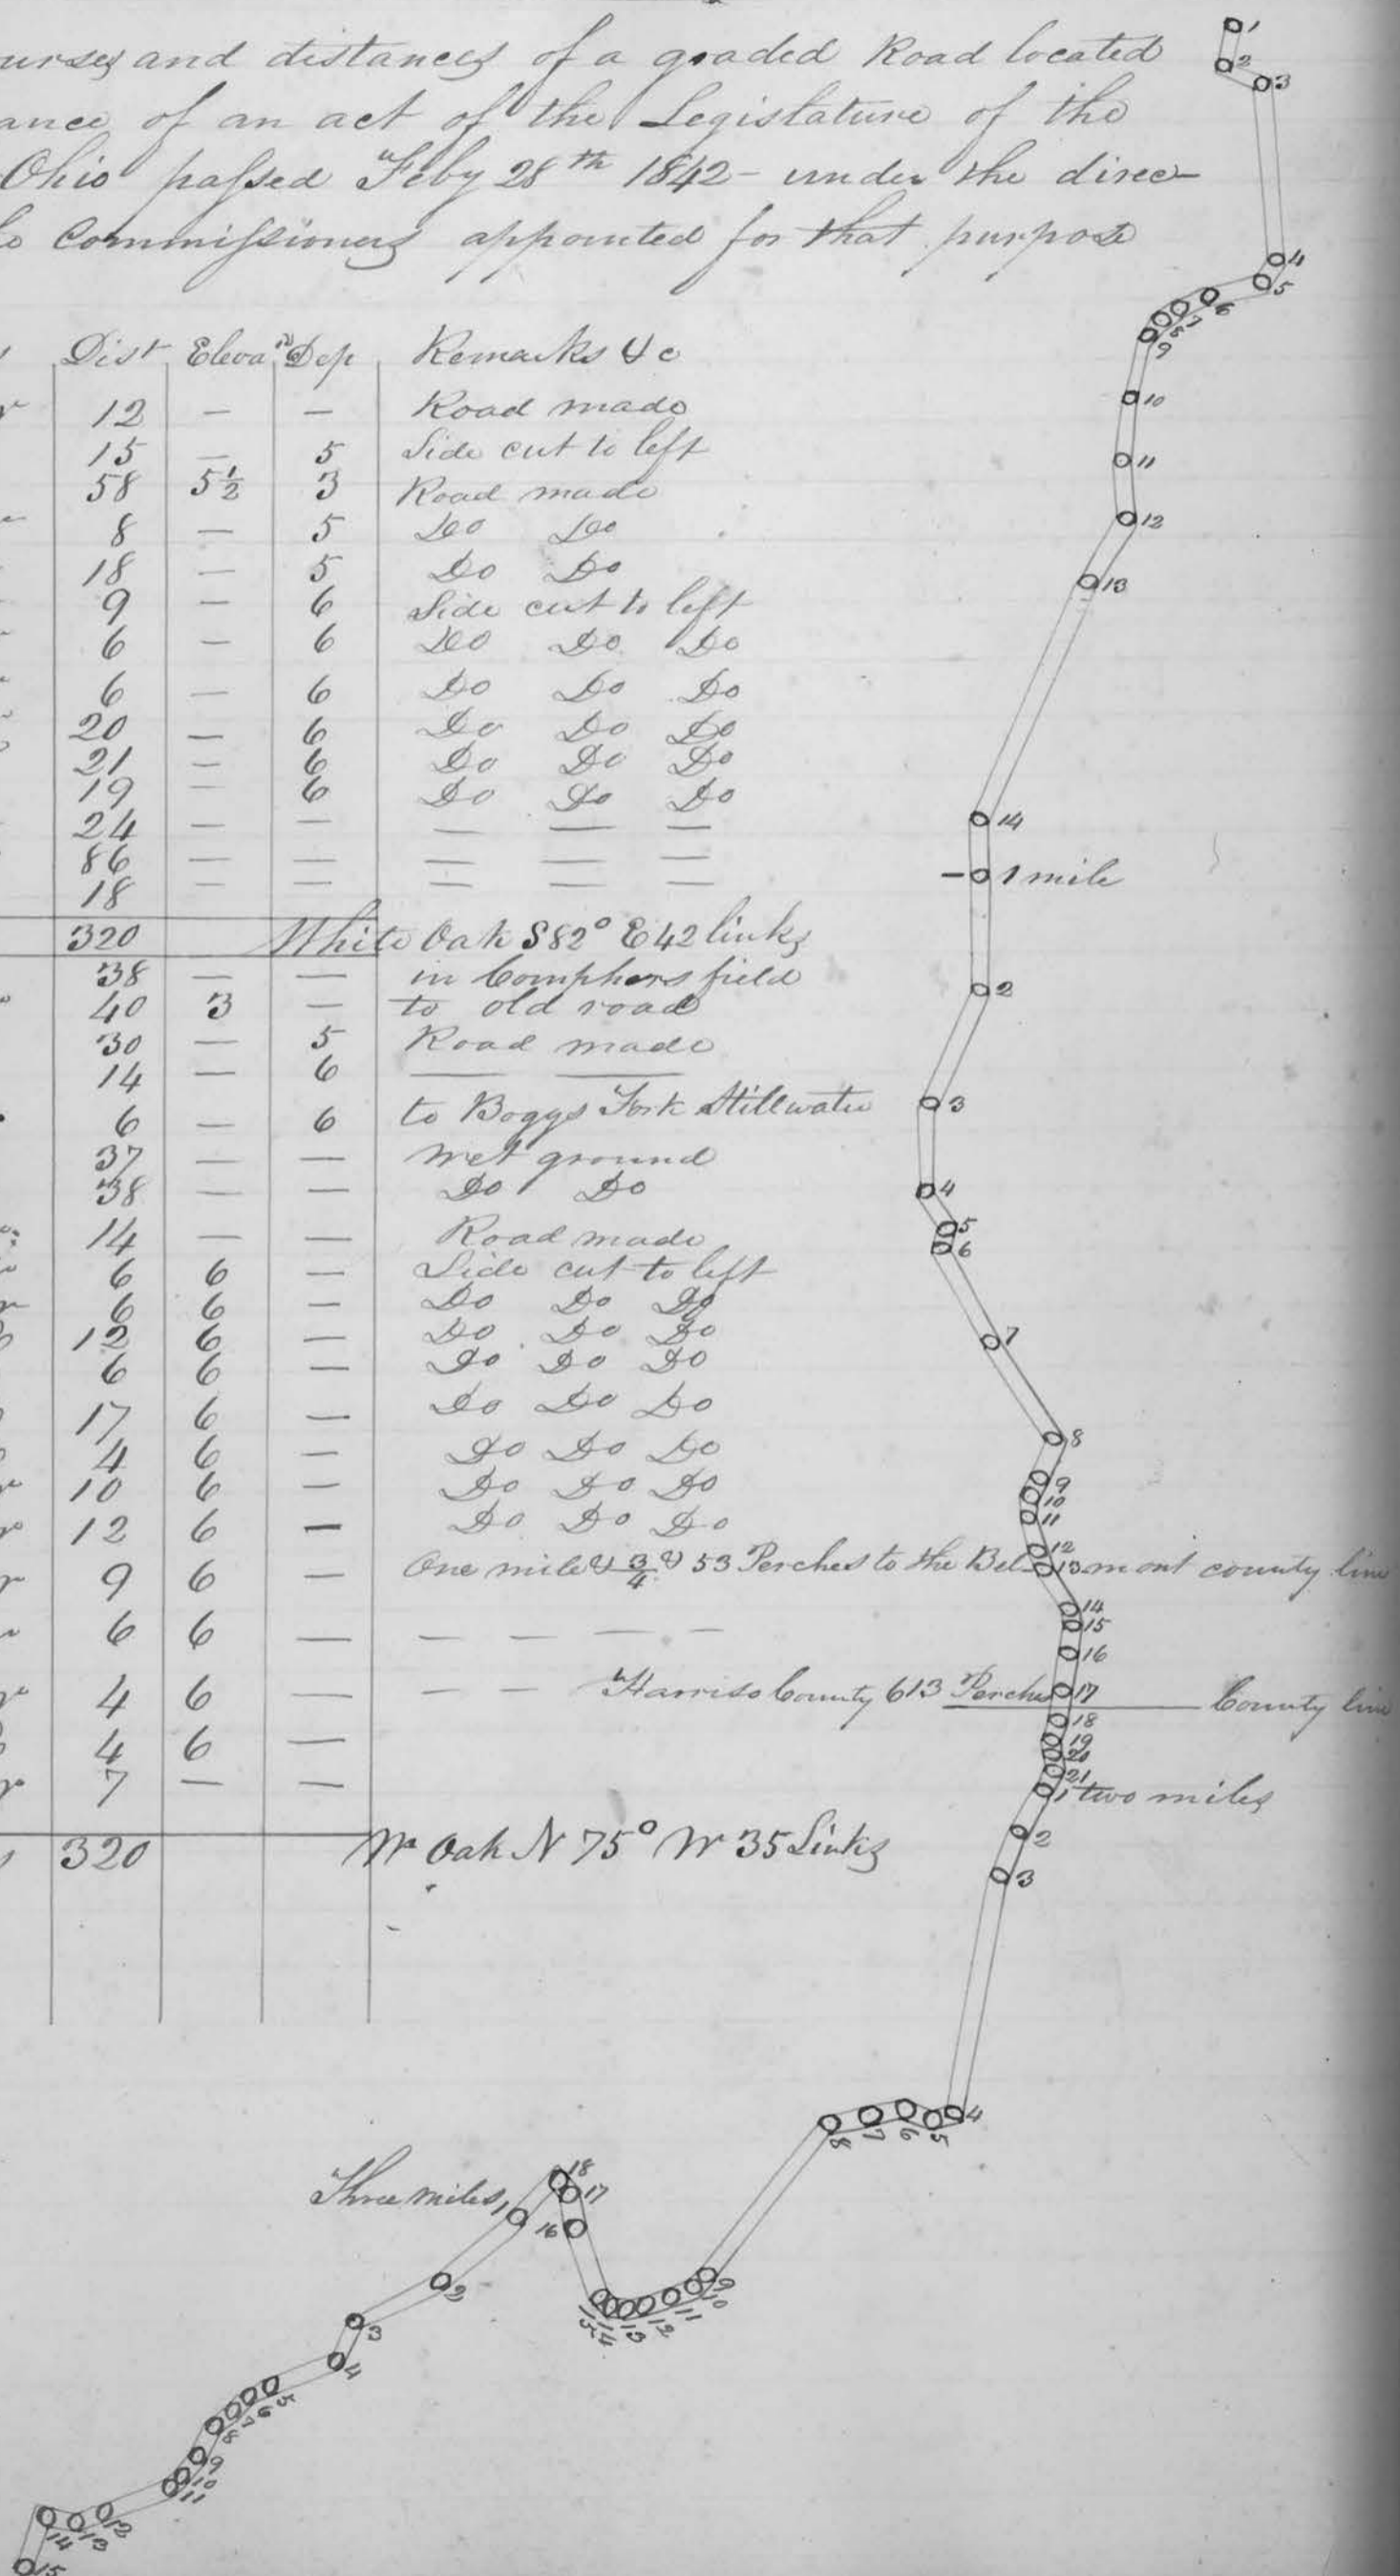 and distances of a graded Road located
of an act of the Legislature of the
Ohio passed Feby 28th 1842 - under the direc-
Commissioners appointed for that purpose
Dist Eleva.n Dep Remarks &c
12 — — Road made
15 — 5 Side cut to left
58 5½ 3 Road made
8 — 5 Do Do
18 — 5 Do Do
9 — 6 Side cut to left
6 — 6 Do Do Do
6 — 6 Do Do Do
20 — 6 Do Do Do
21 — 6 Do Do Do
19 — 6 Do Do Do
24 — — — — —
86 — — — — —
18 — — — — —
320 White Oak S 82° E 42 links
38 — — in field
40 3 — to old road
30 — 5 Road made
14 — 6 — —
6 — 6 to Boggs Fork Stillwater
37 — — wet ground
38 — — Do Do
14 — — Road made
6 6 — Side cut to left
6 6 — Do Do Do
12 6 — Do Do Do
6 6 — Do Do Do
17 6 — Do Do Do
4 6 — Do Do Do
10 6 — Do Do Do
12 6 — Do Do Do
9 6 — One mile & 3/4 & 53 Perches to the Belmont county line
6 6 — — — — —
4 6 — — — Harriso County 613 Perches County line
4 6 —
7 — —
320 W Oak N 75° W 35 Links
1
2
3
4
5
6
7
8
9
10
11
12
13
14
1 mile
2
3
4
5
6
7
8
9
10
11
12
13
14
15
16
17
18
19
20
21
1 two miles
2
3
4
5
6
7
8
9
10
11
12
13
14
15
16
17
18
Three miles 1
2
3
4
5
6
7
8
9
10
11
12
13
14
15